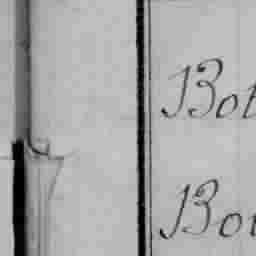 Bot
Bou